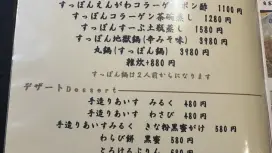 すっぽんえんがわコラーゲンポン酢 1100円
すっぽんコラーゲン茶碗蒸し 1280円
すっぽんすーぷ土瓶蒸し 1580円
すっぽん地獄鍋(辛みそ味) 3980円
丸鍋(すっぽん鍋) 3980円
雑炊+880円
すっぽん鍋は2人前からになります
デザートDessert
手造りあいす みるく 480円
手造りあいす わさび 480円
手造りあいすみるく きな粉黒蜜がけ 580円
わらび餅 黒蜜 580円
とろけるぷりん 580円